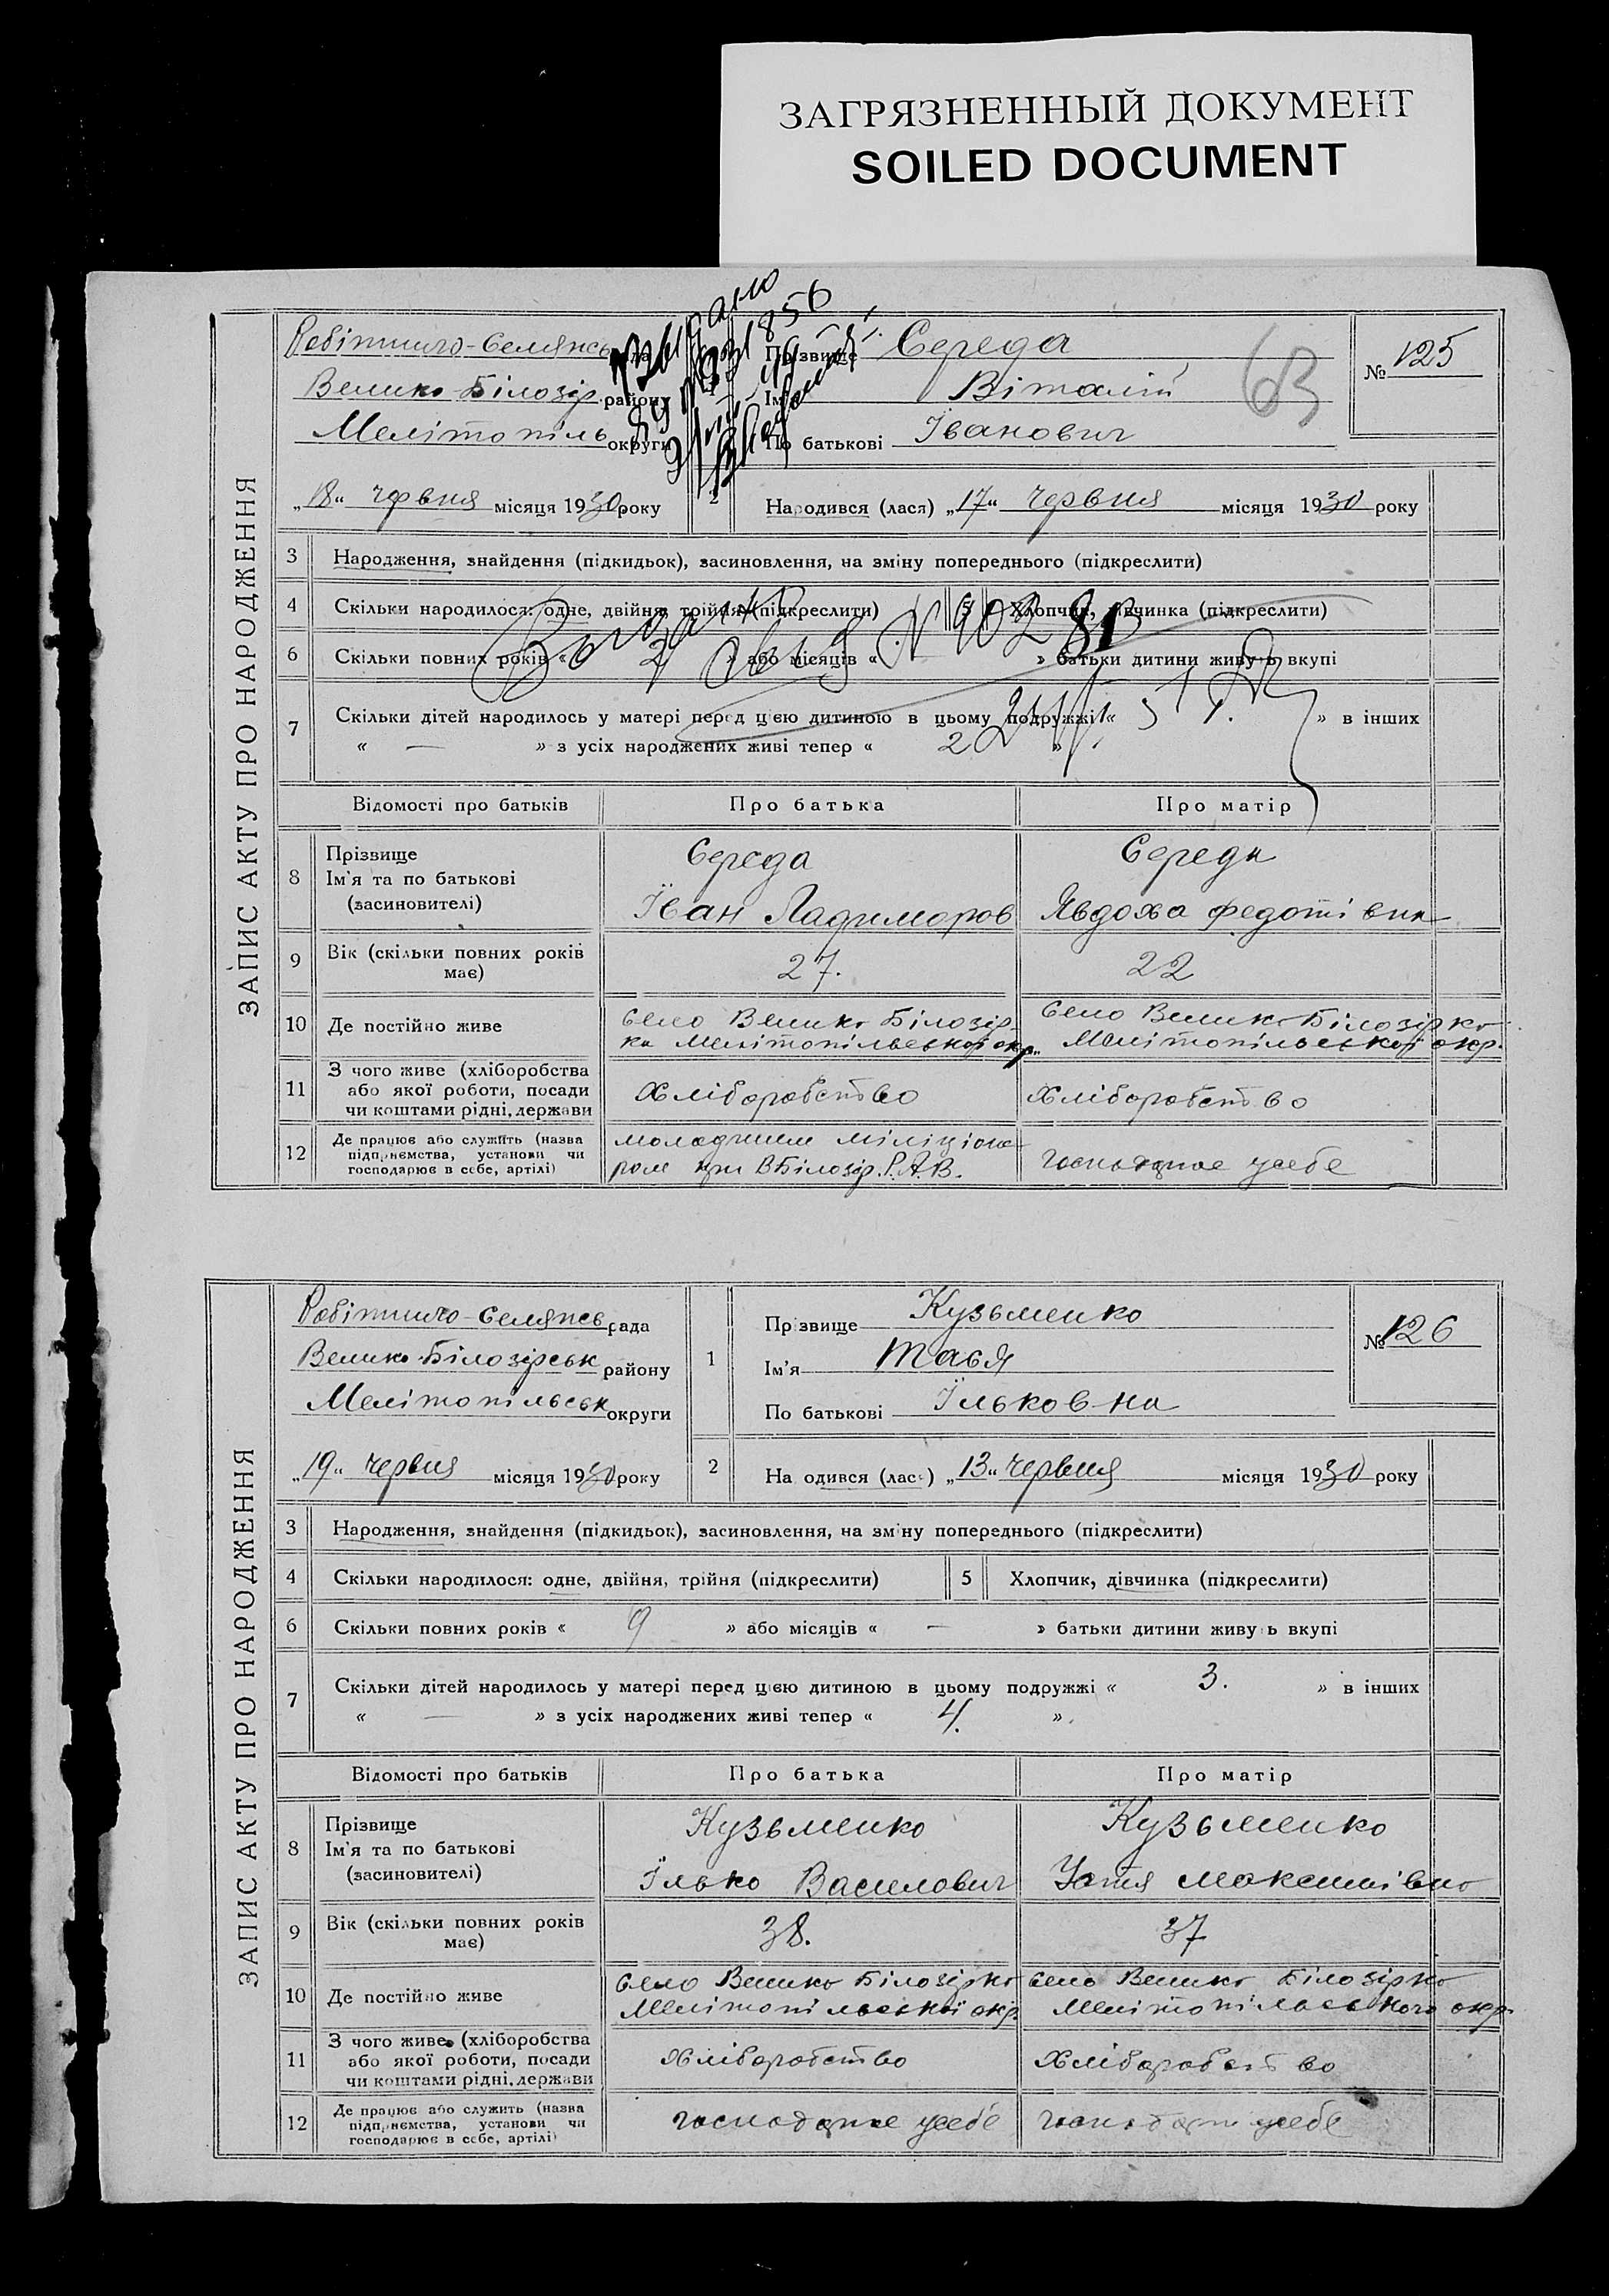 ЗАГРЯЗНЕННЫЙ ДОКУМЕНТ
SOILED DOCUMENT
ЗАПИС АКТУ ПРО НАРОДЖЕННЯ
Робітничо-Селянсь
Велико-Білозір. району
Мелітопіль округи
Прізвище Середа
Ім'я Віталій
По батькові Іванович
№ 125
63
„18" червня місяця 1930 року
2 Народився (лася) „17" червня місяця 1930 року
3 Народження, знайдення (підкидьок), засиновлення, на зміну попереднього (підкреслити)
4 Скільки народилося: одне, двійня, трійня (підкреслити) 5 Хлопчик, дівчинка (підкреслити)
6 Скільки повних років « 2 » або місяців « » батьки дитини живуть вкупі
7 Скільки дітей народилось у матері перед цією дитиною в цьому подружжі « » в інших
« — » з усіх народжених живі тепер « 2 »
Відомості про батьків Про батька Про матір
8 Прізвище Середа Середа
Ім'я та по батькові
(засиновителі) Іван Ладиморов Явдоха Федотівна
9 Вік (скільки повних років має) 27. 22
10 Де постійно живе село Велико Білозірка Мелітопільської окр. село Велико Білозірка Мелітопільської окр.
11 З чого живе (хліборобства
або якої роботи, посади
чи коштами рідні, держави Хліборобство Хліборобство
12 Де працює або служить (назва
підприємства, установи чи
господарює в себе, артілі) молодшим міліціонером при ВБілозір. Р.А.В. господарює усебе
ЗАПИС АКТУ ПРО НАРОДЖЕННЯ
Робітничо-Селянсь рада
Велико-Білозірськ району
Мелітопільськ округи
1 Прізвище Кузьменко
Ім'я Тася
По батькові Ільковна
№ 126
„19" червня місяця 1930 року
2 Народився (лась) „13" червня місяця 1930 року
3 Народження, знайдення (підкидьок), засиновлення, на зміну попереднього (підкреслити)
4 Скільки народилося: одне, двійня, трійня (підкреслити) 5 Хлопчик, дівчинка (підкреслити)
6 Скільки повних років « 9 » або місяців « — » батьки дитини живуть вкупі
7 Скільки дітей народилось у матері перед цією дитиною в цьому подружжі « 3. » в інших
« — » з усіх народжених живі тепер « 4. »
Відомості про батьків Про батька Про матір
8 Прізвище Кузьменко Кузьменко
Ім'я та по батькові
(засиновителі) Ілько Василович Максимівна
9 Вік (скільки повних років має) 38. 37
10 Де постійно живе село Велико Білозірка Мелітопільської окр. село Велико Білозірка Мелітопільського окр.
11 З чого живе (хліборобства
або якої роботи, посади
чи коштами рідні, держави Хліборобство Хліборобство
12 Де працює або служить (назва
підприємства, установи чи
господарює в себе, артілі) господарює усебе господарює усебе